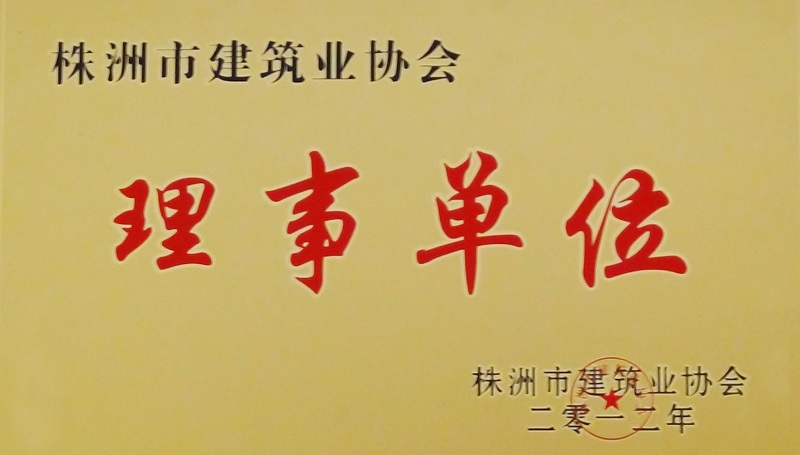 株洲市建筑业协会
理事单位
株洲市建筑业协会
二零一二年